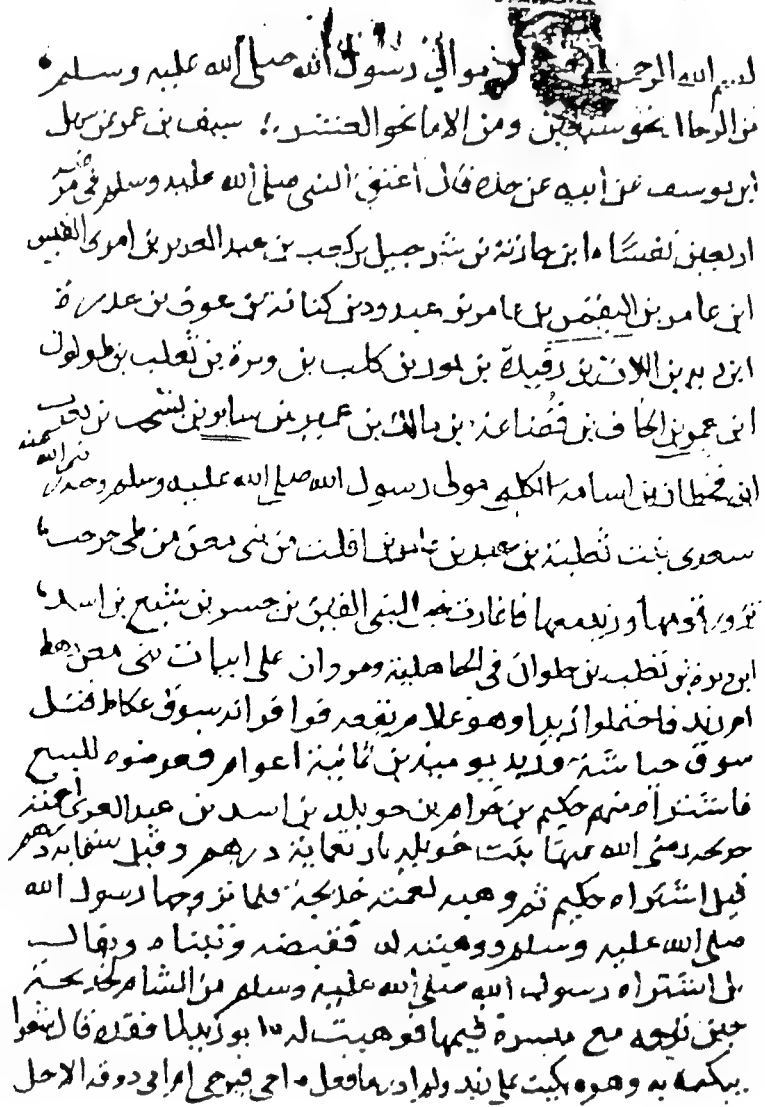 بسم الله الرحمن موالي رسول الله صلى الله عليه وسلم
من الرجال نحو سبعين ومن الاما نحو العشر سيف بن عمر عن سهل
ابن يوسف عن ابيه عن جده قال اعتق النبي صلى الله عليه وسلم في مرضه
اربعين نفسا ابن حارثة بن شرحبيل بن كعب بن عبد العزيز بن امرى القيس
ابن عامر بن النعمن بن عامر بن عبدود بن كنانة بن عوف بن عذرة
ابن زيد بن اللات بن رفيدة بن ثور بن كلب بن وبرة بن تغلب بن حلوان
ابن عمر بن الحاف بن قضاعة بن مالك بن عمير بن سابر بن يشجب بن يعرب
ابن قحطان بن اسامه الكلبي مولى رسول الله صلى الله عليه وسلم رضي الله عنه
سعدى بنت ثعلبة بن عبد بن عامر بن افلت من بني معن من طي خرجت
تزور قومها وزيد معها فاغارت خيل لبني القين بن جسر بن شيع بن اسد
ابن وبرة بن تغلب بن حلوان في الجاهلية ومروا على ابيات بني معن رهط
ام زيد فاحتملوا زيدا وهو غلام يفعه فوافوا به سوق عكاظ فقيل
سوق حباشة وزيد يوميذ بن ثمانية اعوام فعرضوه للبيع
فاشتراه منهم حكيم بن حزام بن خويلد بن اسد بن عبد العزى لعمته
خديجه رضي الله عنها بنت خويلد باربعماية درهم وقيل ستمايه درهم
قيل اشتراه حكيم ثم وهبه لعمته خديجة فلما تزوجها رسول الله
صلى الله عليه وسلم ووهبته له فقبضه وتبناه ويقال
بل اشتراه رسول الله صلى الله عليه وسلم من الشام لخديجة
حين توجه مع ميسرة قيمها فوهبت له ابو زيد لما فقده قال شعرا
يبكيه به وهو بكيت على زيد ولم ادر ما فعل احي فيرجى ام اتى دونه الاجل